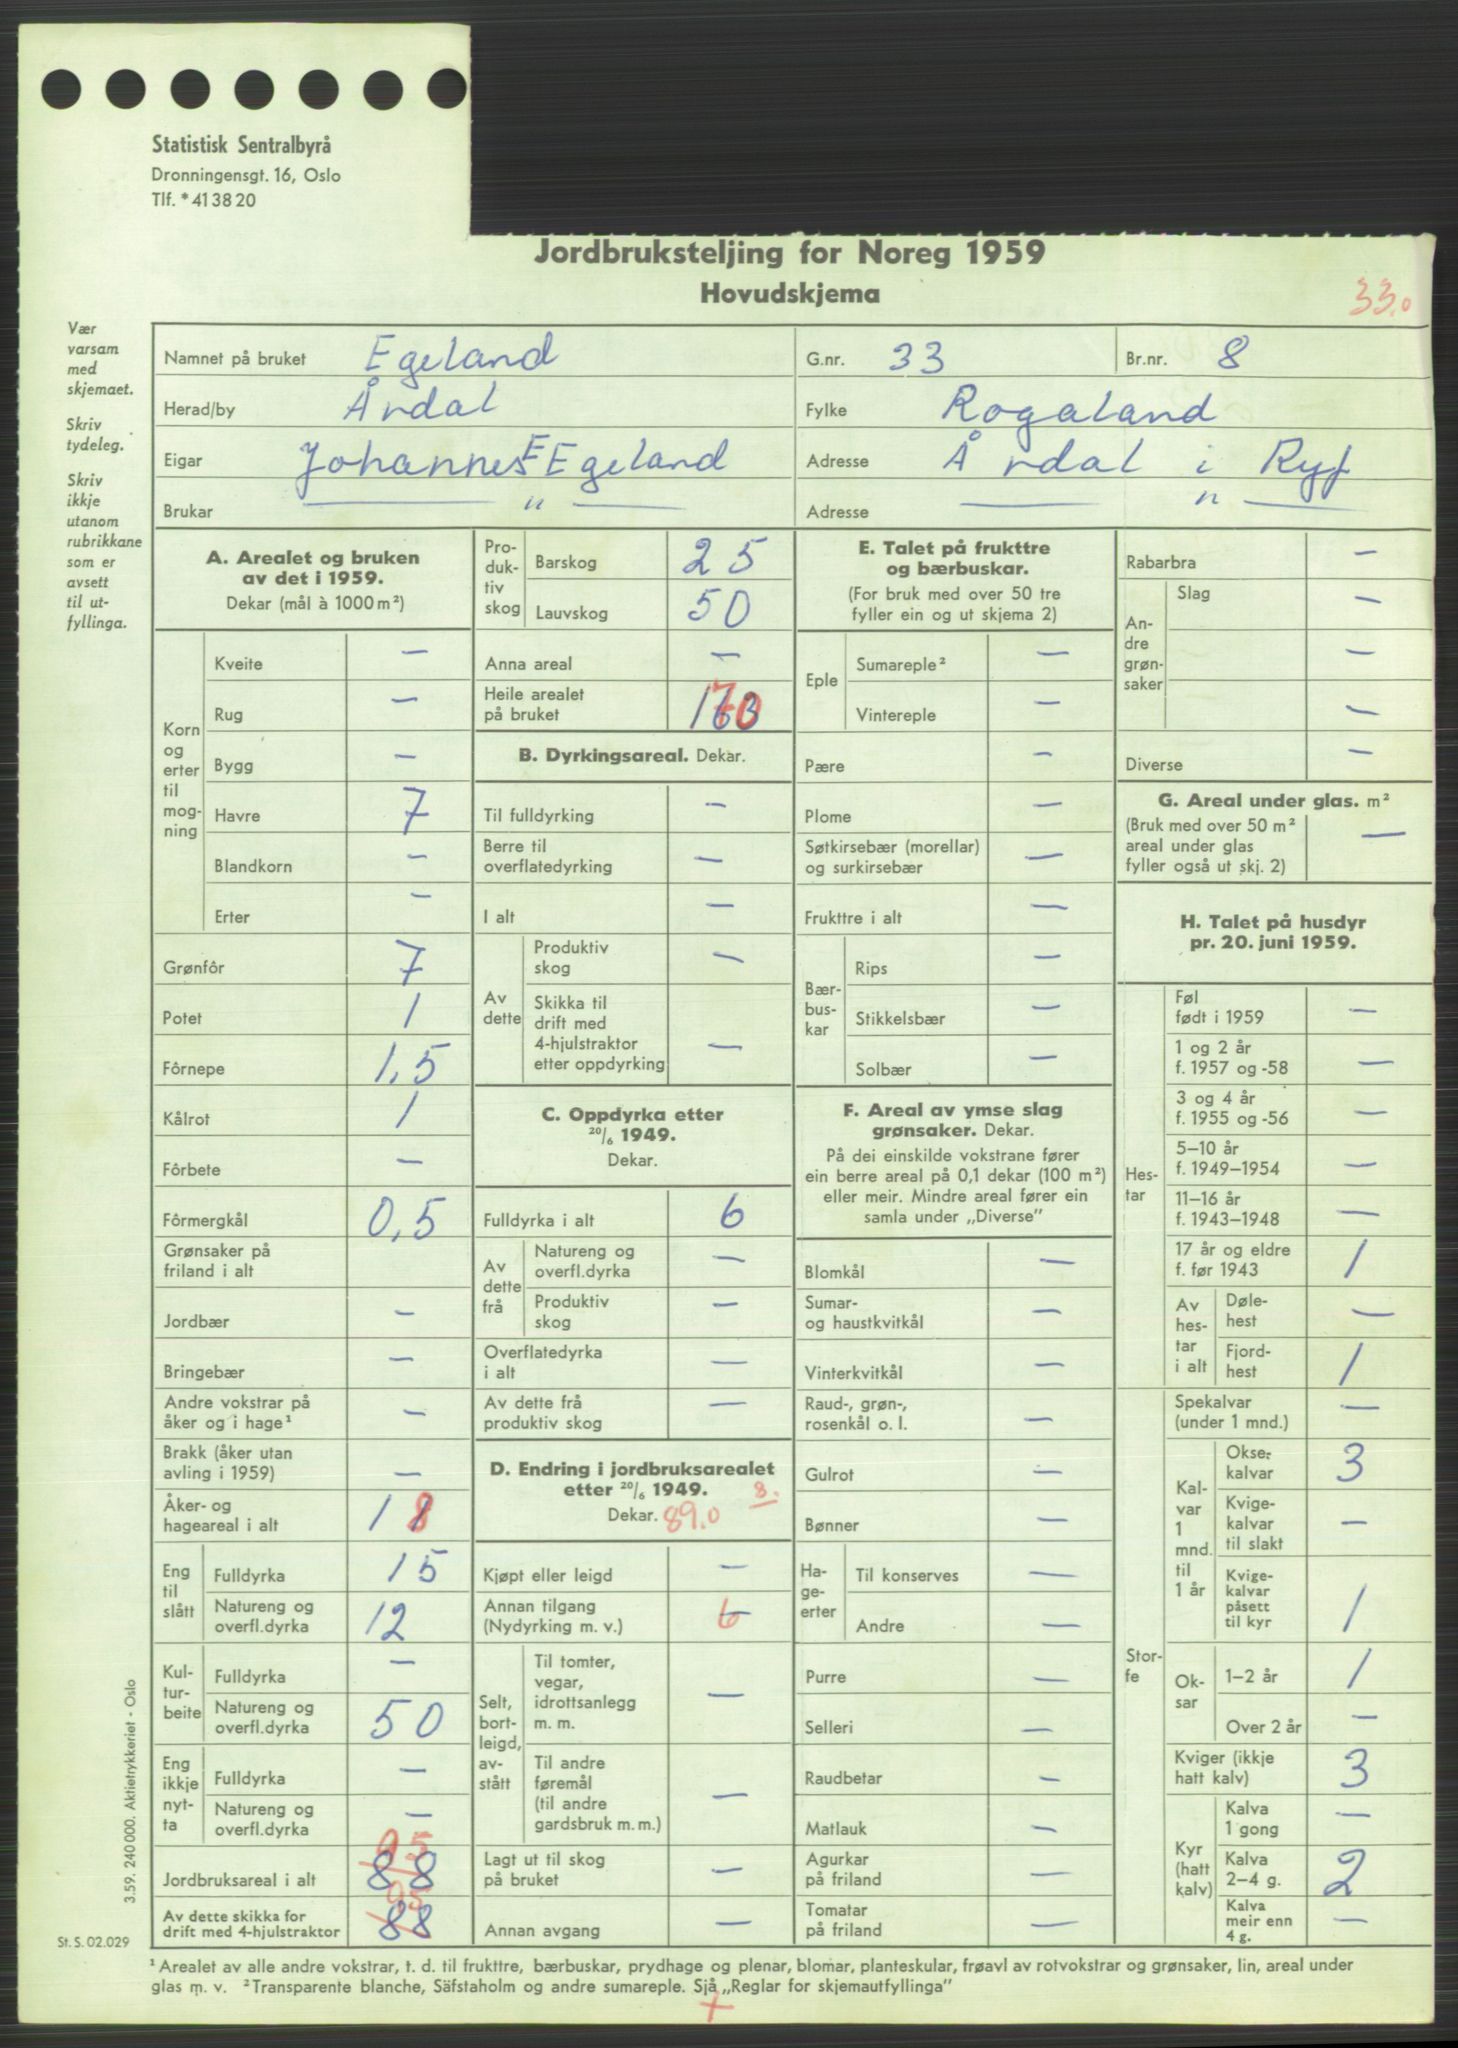 Statistisk Sentralbyrå
Dronningensgt. 16, Oslo
Tlf. * 41 38 20
Jordbruksteljing for Noreg 1959
Hovudskjema
33.0
Vær
varsam
med
skjemaet.
Skriv
tydeleg.
Skriv
ikkje
utanom
rubrikkane
som er
avsett
til ut-
fyllinga.
Namnet på bruket Egeland G.nr. 33 Br.nr. 8
Herad/by Årdal Fylke Rogaland
Eigar Johannes E Egeland Adresse Årdal i Ryf
Brukar — " — Adresse — " —
A. Arealet og bruken
av det i 1959.
Dekar (mål à 1000 m²)
Korn og erter til mog- ning
Kveite —
Rug —
Bygg —
Havre 7
Blandkorn —
Erter —
Grønfôr 7
Potet 1
Fôrnepe 1,5
Kålrot 1
Fôrbete —
Fôrmergkål 0,5
Grønsaker på
friland i alt
Jordbær —
Bringebær —
Andre vokstrar på
åker og i hage¹ —
Brakk (åker utan
avling i 1959) —
Åker- og
hageareal i alt 18
Eng til slått
Fulldyrka 15
Natureng og
overfl.dyrka 12
Kul- tur- beite
Fulldyrka —
Natureng og
overfl.dyrka 50
Eng ikkje nyt- ta
Fulldyrka —
Natureng og
overfl.dyrka —
95
Jordbruksareal i alt 88
95
Av dette skikka for
drift med 4-hjulstraktor 88
Pro- duk- tiv skog
Barskog 25
Lauvskog 50
Anna areal —
Heile arealet
på bruket 170
B. Dyrkingsareal. Dekar.
Til fulldyrking —
Berre til
overflatedyrking —
I alt —
Av dette
Produktiv
skog —
Skikka til
drift med
4-hjulstraktor
etter oppdyrking —
C. Oppdyrka etter
20/6 1949.
Dekar.
Fulldyrka i alt 6
Av dette frå
Natureng og
overfl.dyrka —
Produktiv
skog —
Overflatedyrka
i alt —
Av dette frå
produktiv skog —
D. Endring i jordbruksarealet
etter 20/6 1949. 8.
Dekar. 89.0
Kjøpt eller leigd —
Annan tilgang
(Nydyrking m. v.) 6
Selt, bort- leigd, av- stått
Til tomter,
vegar,
idrottsanlegg
m. m. —
Til andre
føremål
(til andre
gardsbruk m. m.) —
Lagt ut til skog
på bruket —
Annan avgang —
E. Talet på frukttre
og bærbuskar.
(For bruk med over 50 tre
fyller ein og ut skjema 2)
Eple
Sumareple² —
Vintereple —
Pære —
Plome —
Søtkirsebær (morellar)
og surkirsebær —
Frukttre i alt —
Bær- bus- kar
Rips —
Stikkelsbær —
Solbær —
F. Areal av ymse slag
grønsaker. Dekar.
På dei einskilde vokstrane fører
ein berre areal på 0,1 dekar (100 m²)
eller meir. Mindre areal fører ein
samla under „Diverse”
Blomkål —
Sumar-
og haustkvitkål —
Vinterkvitkål —
Raud-, grøn-,
rosenkål o. l. —
Gulrot —
Bønner —
Ha- ge- erter
Til konserves —
Andre —
Purre —
Selleri —
Raudbetar —
Matlauk —
Agurkar
på friland —
Tomatar
på friland —
Rabarbra —
An- dre grøn- saker
Slag —
—
—
Diverse —
G. Areal under glas. m²
(Bruk med over 50 m²
areal under glas
fyller også ut skj. 2) —
H. Talet på husdyr
pr. 20. juni 1959.
Hes- tar
Føl
født i 1959 —
1 og 2 år
f. 1957 og -58 —
3 og 4 år
f. 1955 og -56 —
5–10 år
f. 1949–1954 —
11–16 år
f. 1943–1948 —
17 år og eldre
f. før 1943 1
Av hes- tar i alt
Døle-
hest —
Fjord-
hest 1
Stor- fe
Spekalvar
(under 1 mnd.) —
Kal- var 1 mnd. til 1 år
Okse-
kalvar 3
Kvige-
kalvar
til slakt —
Kvige-
kalvar
påsett
til kyr 1
Ok- sar
1–2 år 1
Over 2 år —
Kviger (ikkje
hatt kalv) 3
Kyr (hatt kalv)
Kalva
1 gong —
Kalva
2–4 g. 2
Kalva
meir enn
4 g. —
3.59. 240 000. Aktietrykkeriet - Oslo
St. S. 02.029
¹ Arealet av alle andre vokstrar, t. d. til frukttre, bærbuskar, prydhage og plenar, blomar, planteskular, frøavl av rotvokstrar og grønsaker, lin, areal under
glas m. v. ² Transparente blanche, Säfstaholm og andre sumareple. Sjå „Reglar for skjemautfyllinga”
+